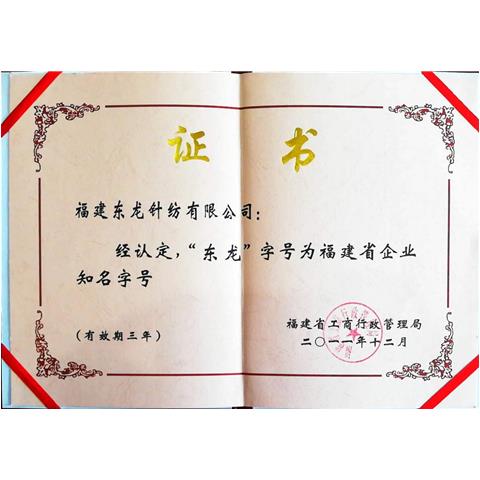 证书
福建东龙针纺有限公司：
经认定，“东龙”字号为福建省企业
知名字号
福建省工商行政管理局
(有效期三年)
二〇一一年十二月